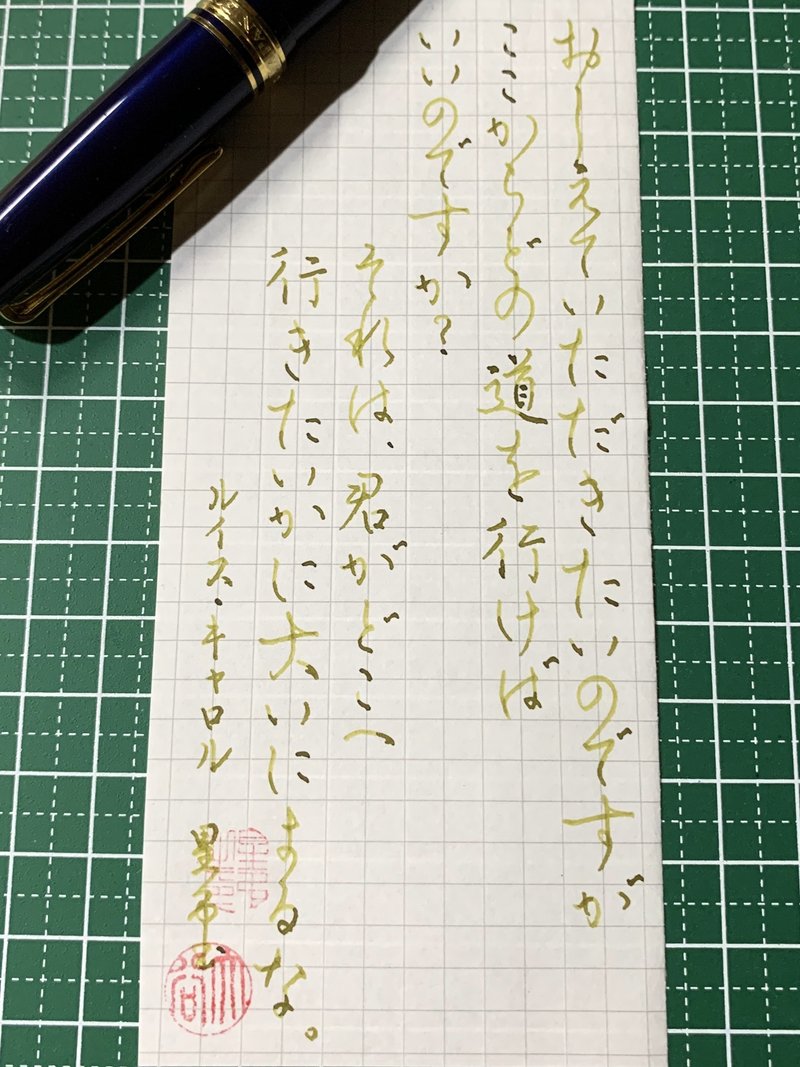 おしえていただきたいのですが
ここからどの道を行けば
いいのですか?
それは、君がどこへ
行きたいかに大いに
よるな。
ルイス・キャロル
PAN